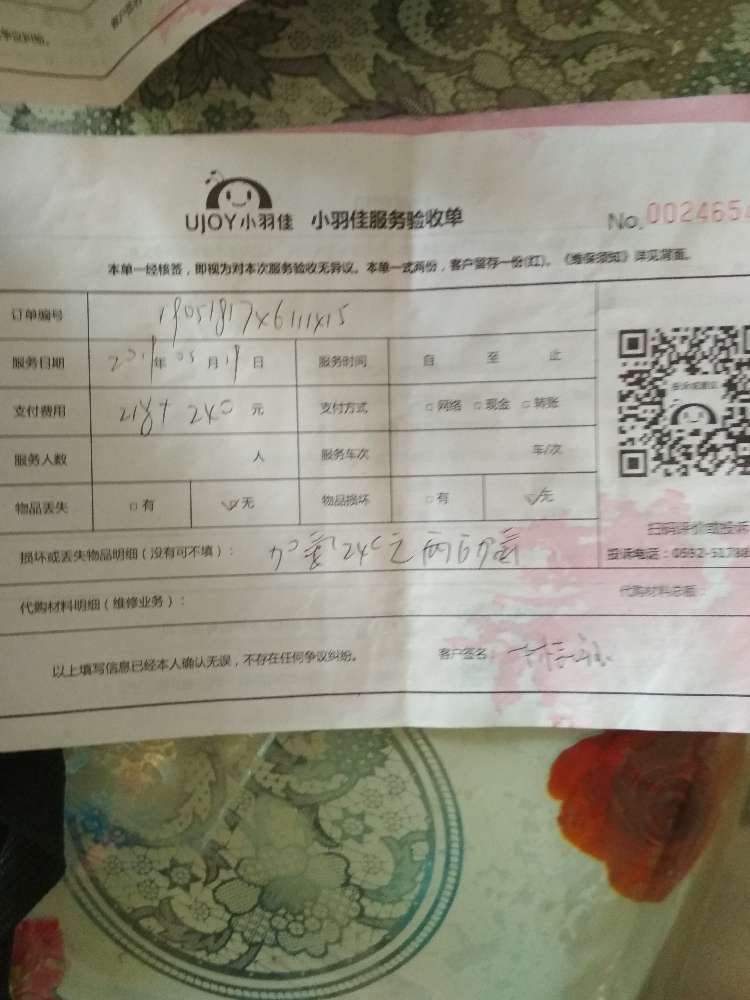 UJOY小羽佳 小羽佳服务验收单 No. 0024654
本单一经核签，即视为对本次服务验收无异议。本单一式两份，客户留存一份(红)。《维保须知》详见背面。
订单编号
服务日期 2019年05月19日 服务时间 自 至 止
支付费用 218+240 元 支付方式 □网络 □现金 □转账
服务人数 人 服务车次 车/次
物品丢失 □有 ☑无 物品损坏 □有 ☑无
扫码评价或投诉
损坏或丢失物品明细（没有可不填）： 加氟240元
投诉电话：0532-51788
代购材料明细（维修业务）： 代购材料总额：
以上填写信息已经本人确认无误，不存在任何争议纠纷。 客户签名：